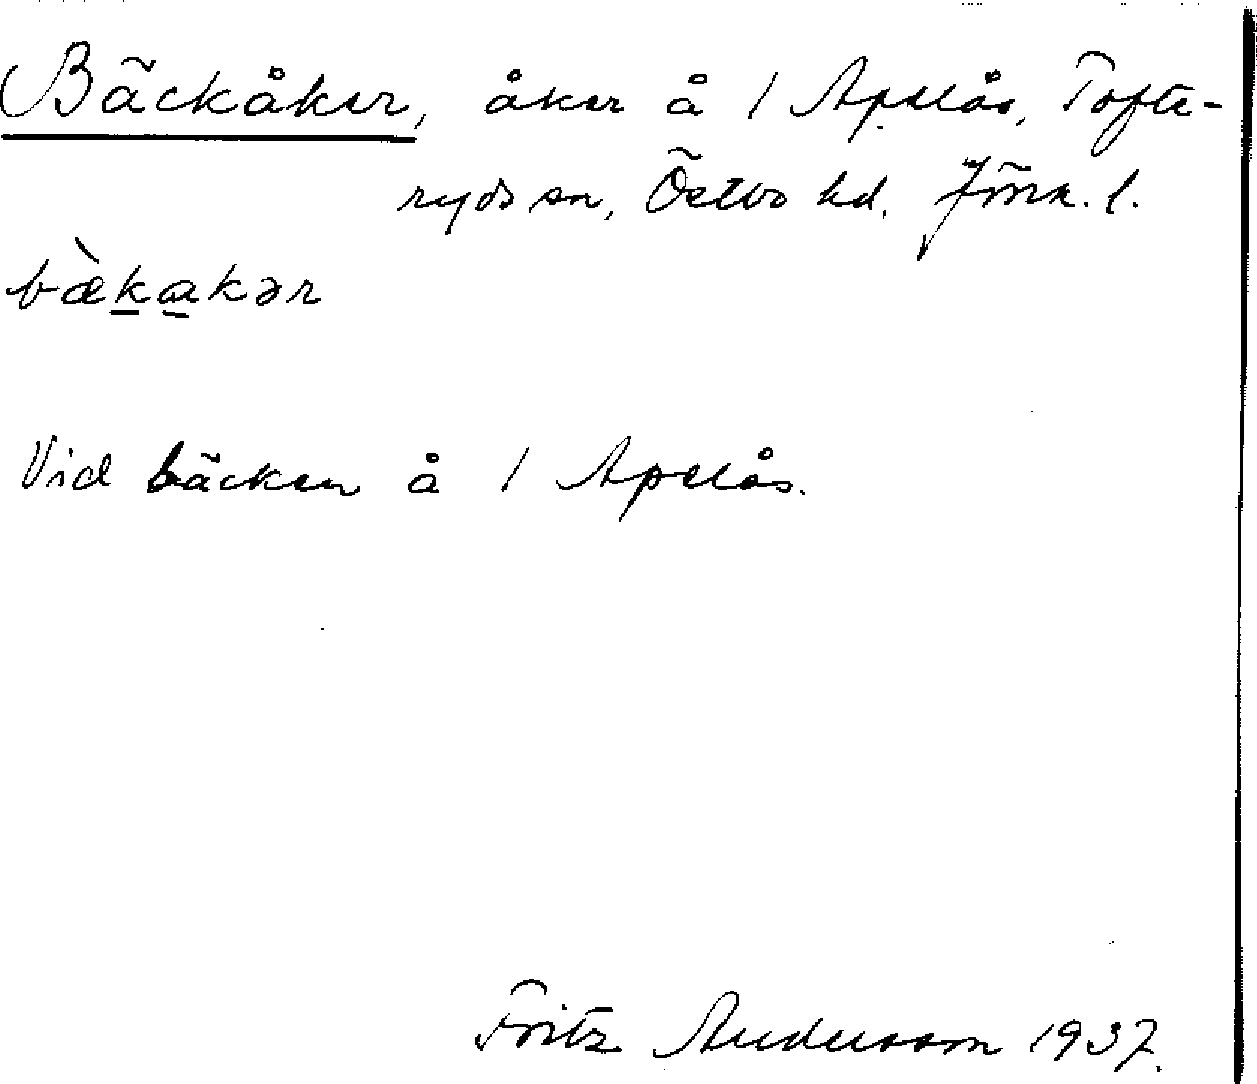 Bäckåker, åker å 1 Apelås, Tofte-
ryds sn, Östbo hd. Jönk. l.
bæ̀kakər
Vid bäcken å 1 Apelås.
Fritz Andersson 1937.